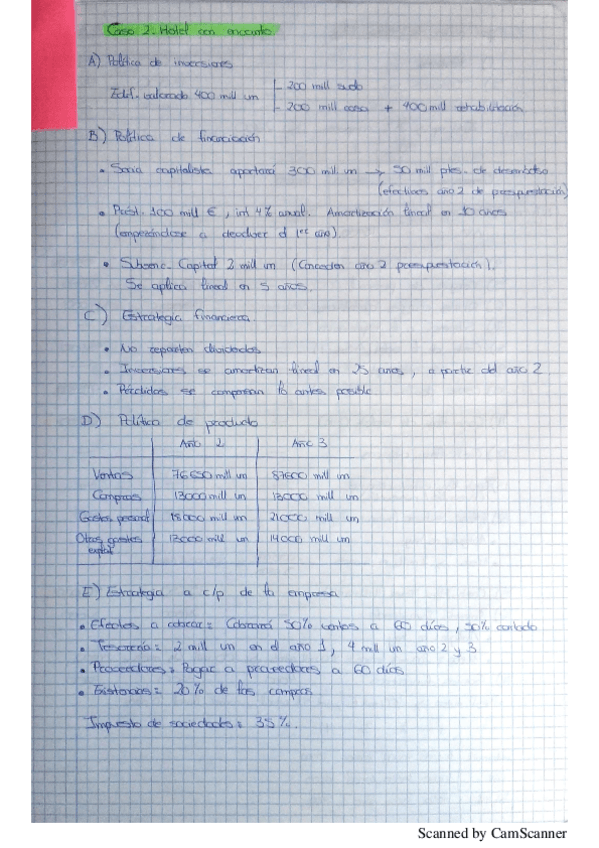 Caso 2. Hotel con encanto
A) Política de inversiones
Edif. valorado 400 mill un
200 mill suelo
200 mill casa + 400 mill rehabilitación
B) Política de financiación
• Socio capitalista aportará 300 mill un → 50 mill ptes. de desembolso
(efectivos año 2 de presupuestación)
• Prést. 100 mill €, int 4% anual. Amortización lineal en 10 años
(empezándose a devolver el 1er año).
• Subvenc. Capital 2 mill un (Concesión año 2 presupuestación).
Se aplica lineal en 5 años.
C) Estrategia financiera
• No reparten dividendos
• Inversiones se amortizan lineal en 25 años, a partir del año 2
• Pérdidas se compensan lo antes posible
D) Política de producto
Año 2 Año 3
Ventas 76650 mill un 87600 mill un
Compras 13000 mill un 18000 mill un
Gastos personal 18000 mill un 21000 mill un
Otros gastos explot 13000 mill un 14000 mill un
E) Estrategia a c/p de la empresa
• Efectos a cobrar = Cobrará 50% ventas a 60 días, 50% contado
• Tesorería = 2 mill un en el año 1, 4 mill un año 2 y 3
• Proveedores = Pagar a proveedores a 60 días
• Existencias = 20% de las compras
Impuesto de sociedades = 35%.
Scanned by CamScanner